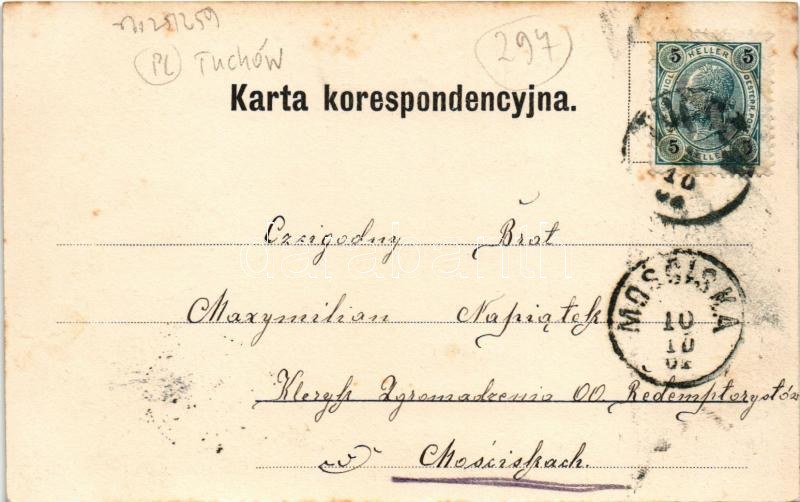 297
PL Tuchów
Karta korespondencyjna.
5 HELLER 5
5 HELLER 5
10
Czcigodny Brat
Maxymilian Napiątek
MOŚCISKA
10
10
02
Kleryk Zgromadzenia OO. Redemptorystów
w Mościskach.